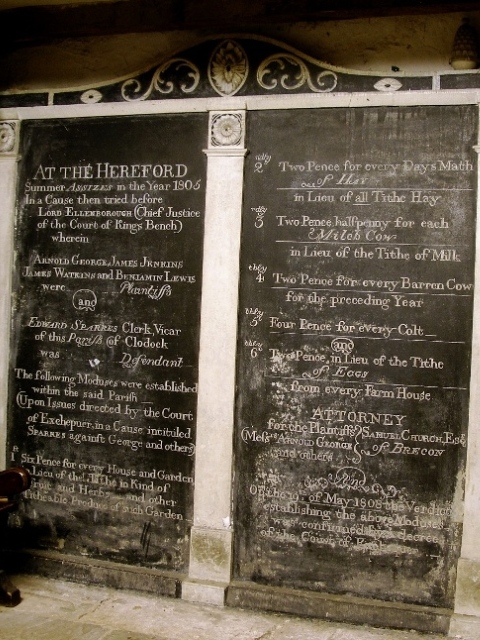 AT THE HEREFORD
Summer ASSIZES in the Year 1805
In a Cause then tried before
LORD ELLENBOROUGH (Chief Justice
of the Court of King's Bench)
wherein
ARNOLD GEORGE, JAMES JENKINS
JAMES WATKINS and BENJAMIN LEWIS
were Plaintiffs
and
EDWARD SPARKES Clerk, Vicar
of this Pariſh of Clodock
was Defendant
The following Moduses were established
within the said Pariſh
(Upon Issues directed by the Court
of Exchequer, in a Cause intituled
SPARKES againſt George and others)
Six Pence for every House and Garden
in Lieu of the Tithe in Kind of
Fruit and Herbs and other
Titheable Produce of such Garden
2 Two Pence for every Day's Math
of Hay
in Lieu of all Tithe Hay
3 Two Pence halfpenny for each
Milch Cow
in Lieu of the Tithe of Milk
4 Two Pence for every Barren Cow
for the preceding Year
5 Four Pence for every Colt
and
6 Two Pence, in Lieu of the Tithe
of EGGS
from every Farm House
ATTORNEY
for the Plaintiffs SAMUEL CHURCH, Esq
(Meſs ARNOLD GEORGE of BRECON
and others)
of May 1808 the Verdict
establishing the above Moduses
was confirmed by a decree
of the Court of